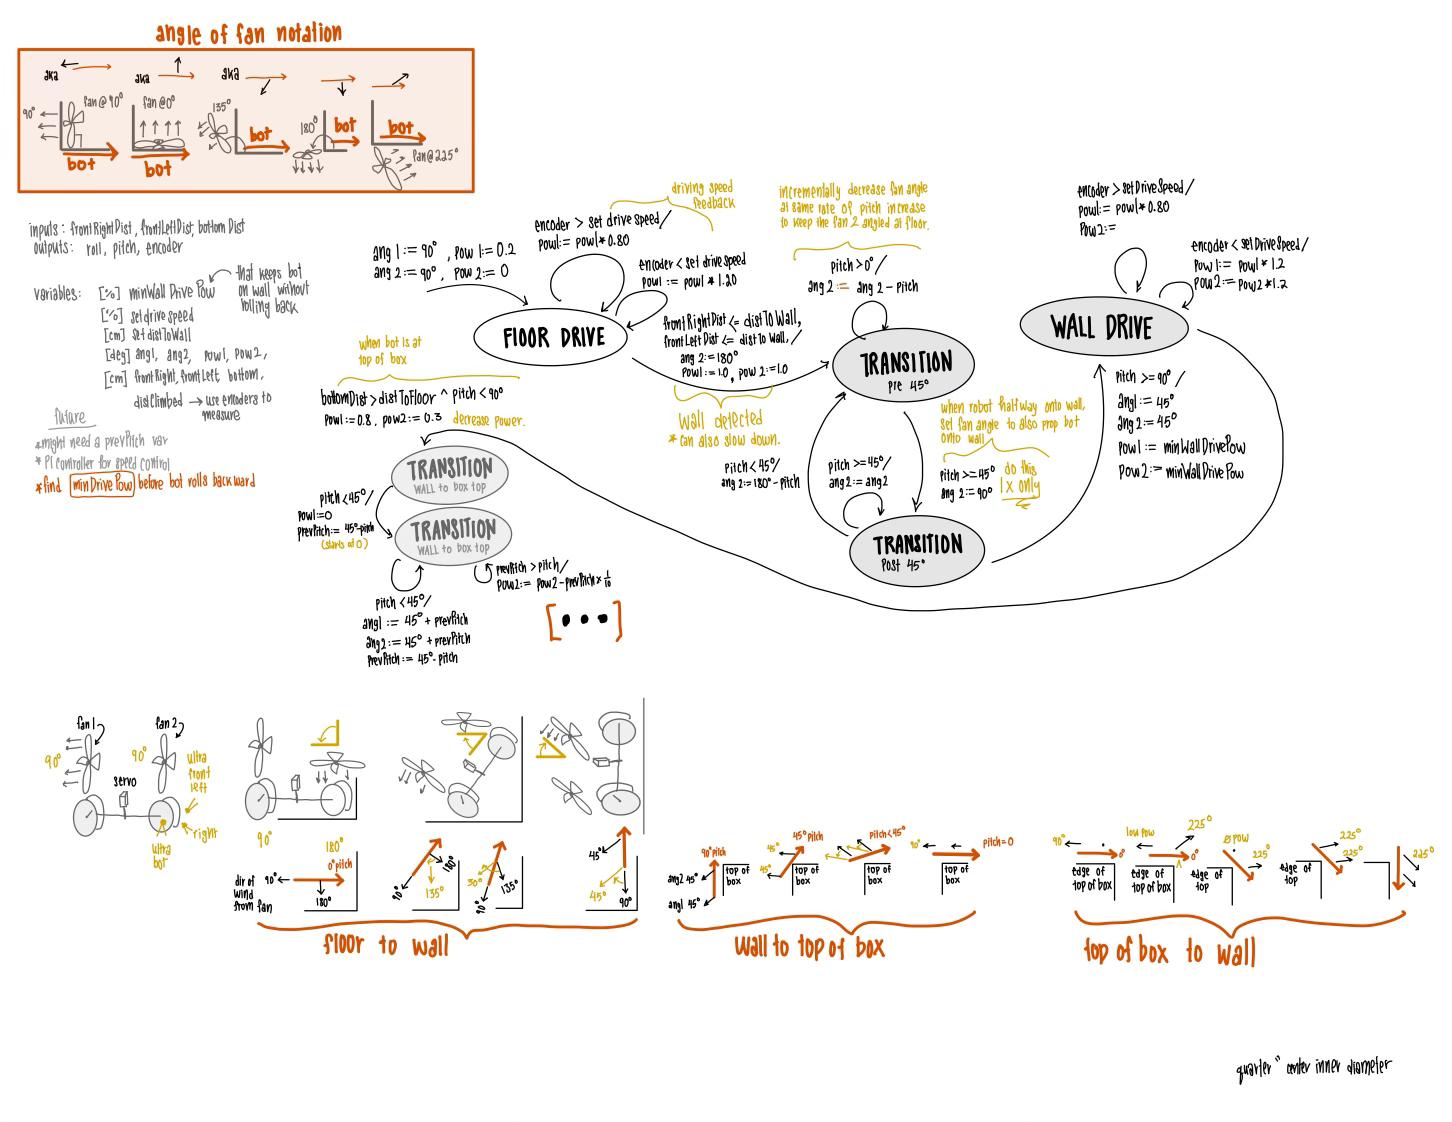 angle of fan notation
aka
aka
aka
90°
fan@90°
fan@0°
135°
180°
fan@225°
bot
bot
bot
bot
bot
inputs: frontRightDist, frontLeftDist, bottomDist
outputs: roll, pitch, encoder
variables:
[%] minWall Drive Pow
that keeps bot
on wall without
rolling back
[%] setdrive speed
[cm] set distToWall
[deg] ang1, ang2, pow1, pow2,
[cm] frontRight, frontLeft, bottom,
distClimbed → use encoders to
measure
future
*might need a prevPitch var
* PI controller for speed control
*find minDrivePow before bot rolls backward
ang 1:= 90°, Pow 1:= 0.2
ang 2:= 90°, Pow 2:= 0
driving speed
feedback
encoder > set drive speed/
pow1:= pow1 * 0.80
encoder < set drive speed
pow1 := pow1 * 1.20
FLOOR DRIVE
frontRightDist <= distToWall,
frontLeftDist <= dist to Wall,/
ang 2:= 180°
pow1:= 1.0, pow 2:=1.0
Wall detected
* can also slow down.
incrementally decrease fan angle
at same rate of pitch increase
to keep the fan 2 angled at floor.
pitch>0°/
ang 2:= ang 2 - pitch
TRANSITION
pre 45°
pitch<45°/
ang 2:=180°-pitch
pitch>=45°/
ang2:=ang2
when robot halfway onto wall,
set fan angle to also prop bot
onto wall
pitch>=45°
ang 2:= 90°
do this
1x only
TRANSITION
Post 45°
encoder > setDriveSpeed/
pow1:= pow1*0.80
Pow2:=
encoder < setDriveSpeed/
pow 1:= pow1 * 1.2
pow2:= pow2*1.2
WALL DRIVE
Pitch >=90°/
ang1:= 45°
ang2:= 45°
pow1 := minWallDrivePow
pow2:= minWallDrivePow
when bot is at
top of box
bottomDist > distToFloor ^ pitch < 90°
pow1:=0.8, pow2:= 0.3
decrease power.
TRANSITION
WALL to box top
pitch<45°/
pow1:=0
prevPitch:= 45°-pitch
(starts at 0)
TRANSITION
WALL to box top
prevPitch > pitch/
pow2:= pow2-prevPitch× 1/10
pitch <45°/
ang1 := 45° + prevPitch
ang2:= 45° + prevPitch
prevPitch:= 45°-pitch
[•••]
fan1
fan 2
90°
90°
servo
ultra
front
left
right
ultra
bot
90°
180°
0°pitch
dir of
wind
from fan
90°
180°
90°
180°
135°
30°
90°
135°
45°
45°
90°
floor to wall
90°pitch
ang2 45°
ang1 45°
top of
box
45°pitch
45°
45°
top of
box
pitch<45°
top of
box
90°
pitch=0
top of
box
Wall to top of box
90°
0°
edge of
top of box
low pow
225°
0°
edge of
top of box
ø pow
225°
edge of
top
225°
225°
edge of
top
225°
top of box to wall
quarter" center inner diameter